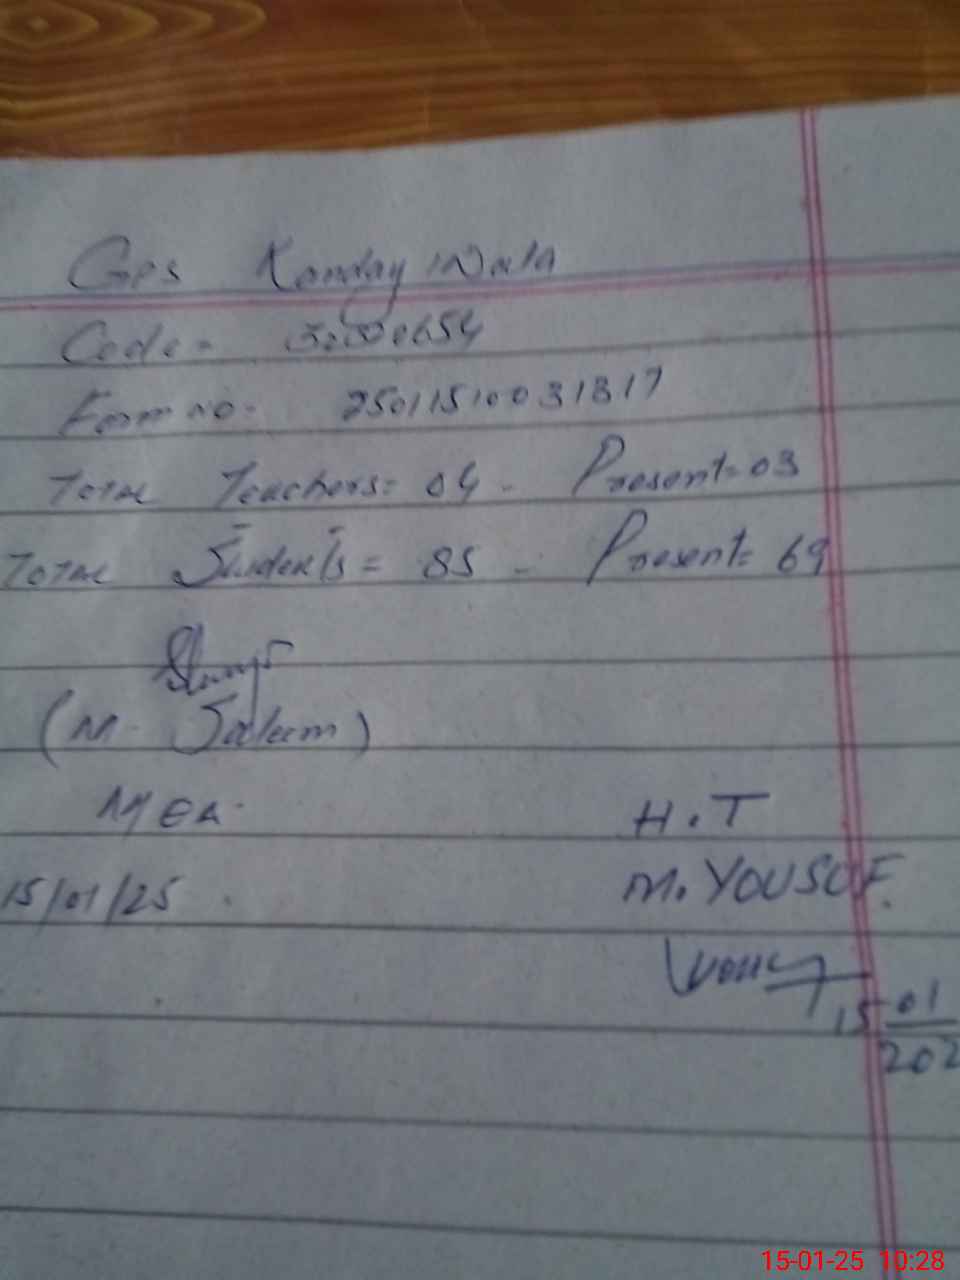 GPS Kanday Wala
Code =
Form no. 25011510031317
Total Teachers = 04 - Present = 03
Total Students = 85 - Present = 69
(M. Saleem)
MEA.
15/01/25
H.T
M. YOUSOF
15 01
202
15-01-25 10:28